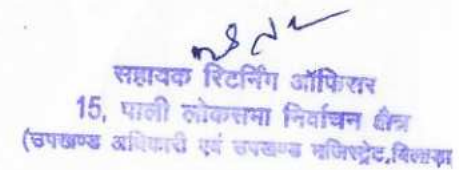 सहायक रिटर्निंग ऑफिसर
15, पाली लोकसभा निर्वाचन क्षैत्र
(उपखण्ड अधिकारी एवं उपखण्ड मजिस्ट्रेट,बिलाड़ा